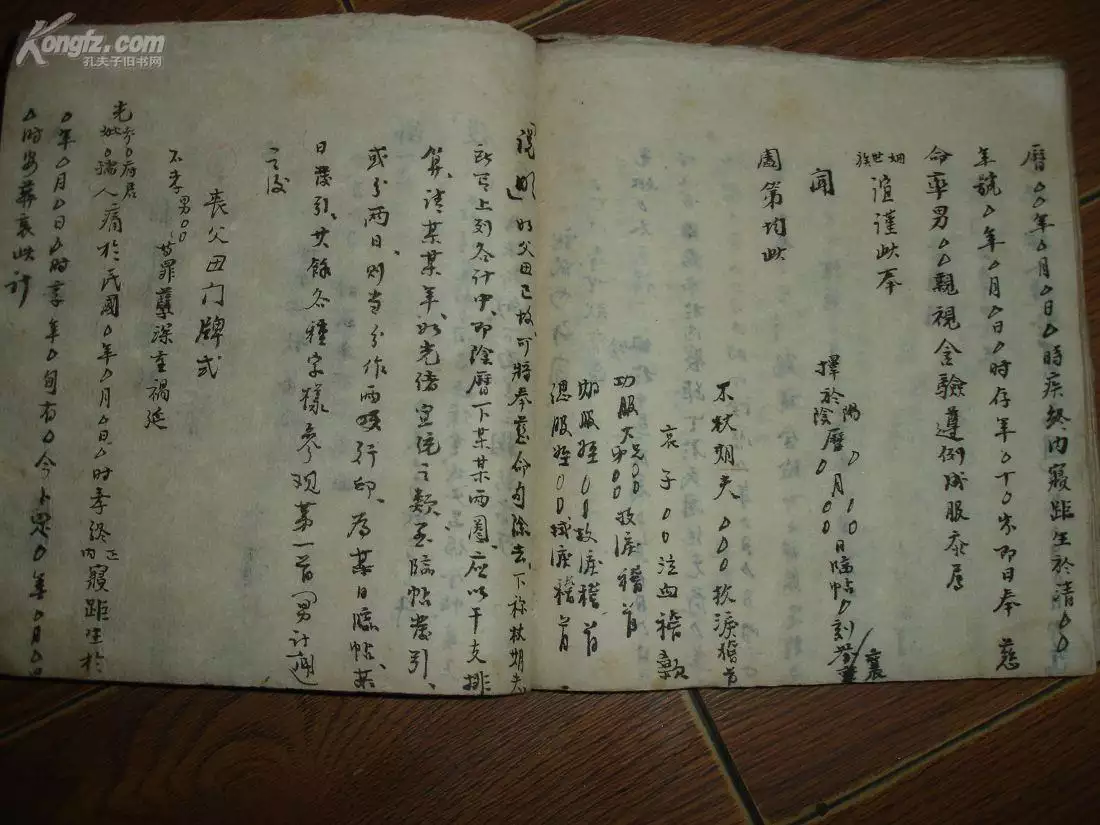 Kongfz.com
孔夫子旧书网
曆〇〇年〇月〇日〇時疾終内寢距生於清〇〇
年號〇年〇月〇日〇时存年〇十〇歲即日奉 慈
命率男〇〇親視含驗遵例成服忝屬
姻世族誼謹此奉
聞
擇於陽陰曆〇月〇〇日臨帖〇刻
闔第均此
不杖期夫〇〇〇抆淚稽首
哀子〇〇泣血稽顙
功服大兄弟〇〇〇抆淚稽首
期服姪〇〇抆淚稽首
緦服姪〇〇拭淚稽首
說明 如父母已故可將奉慈命句除去下称杖期夫
所有上列各什中即陰曆下某某兩圈应以干支排
算、清某某年、如光绪宣统之類至臨帖發引、
或分兩日、則当分作兩項行印、为某日臨帖、某
日發引、其餘各種字樣参观第一首男訃通
之後
丧父母门牌式
不孝男〇〇等罪孽深重禍延
先考〇府君
妣〇孺人痛於民國〇年〇月〇日〇时寿终正内寢距生於
〇年〇月〇日〇时享年〇旬有〇今卜葬〇年〇月〇日
〇时安葬哀此訃